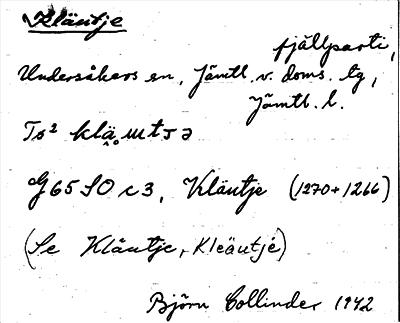 Kläntje
fjällparti,
Undersåkers sn, Jämtl. v. doms. tg,
Jämtl. l.
G65SO c3, Kläntje (1270+1266)
(Se Kläntje, Kleäntjé)
Björn Collinder 1942